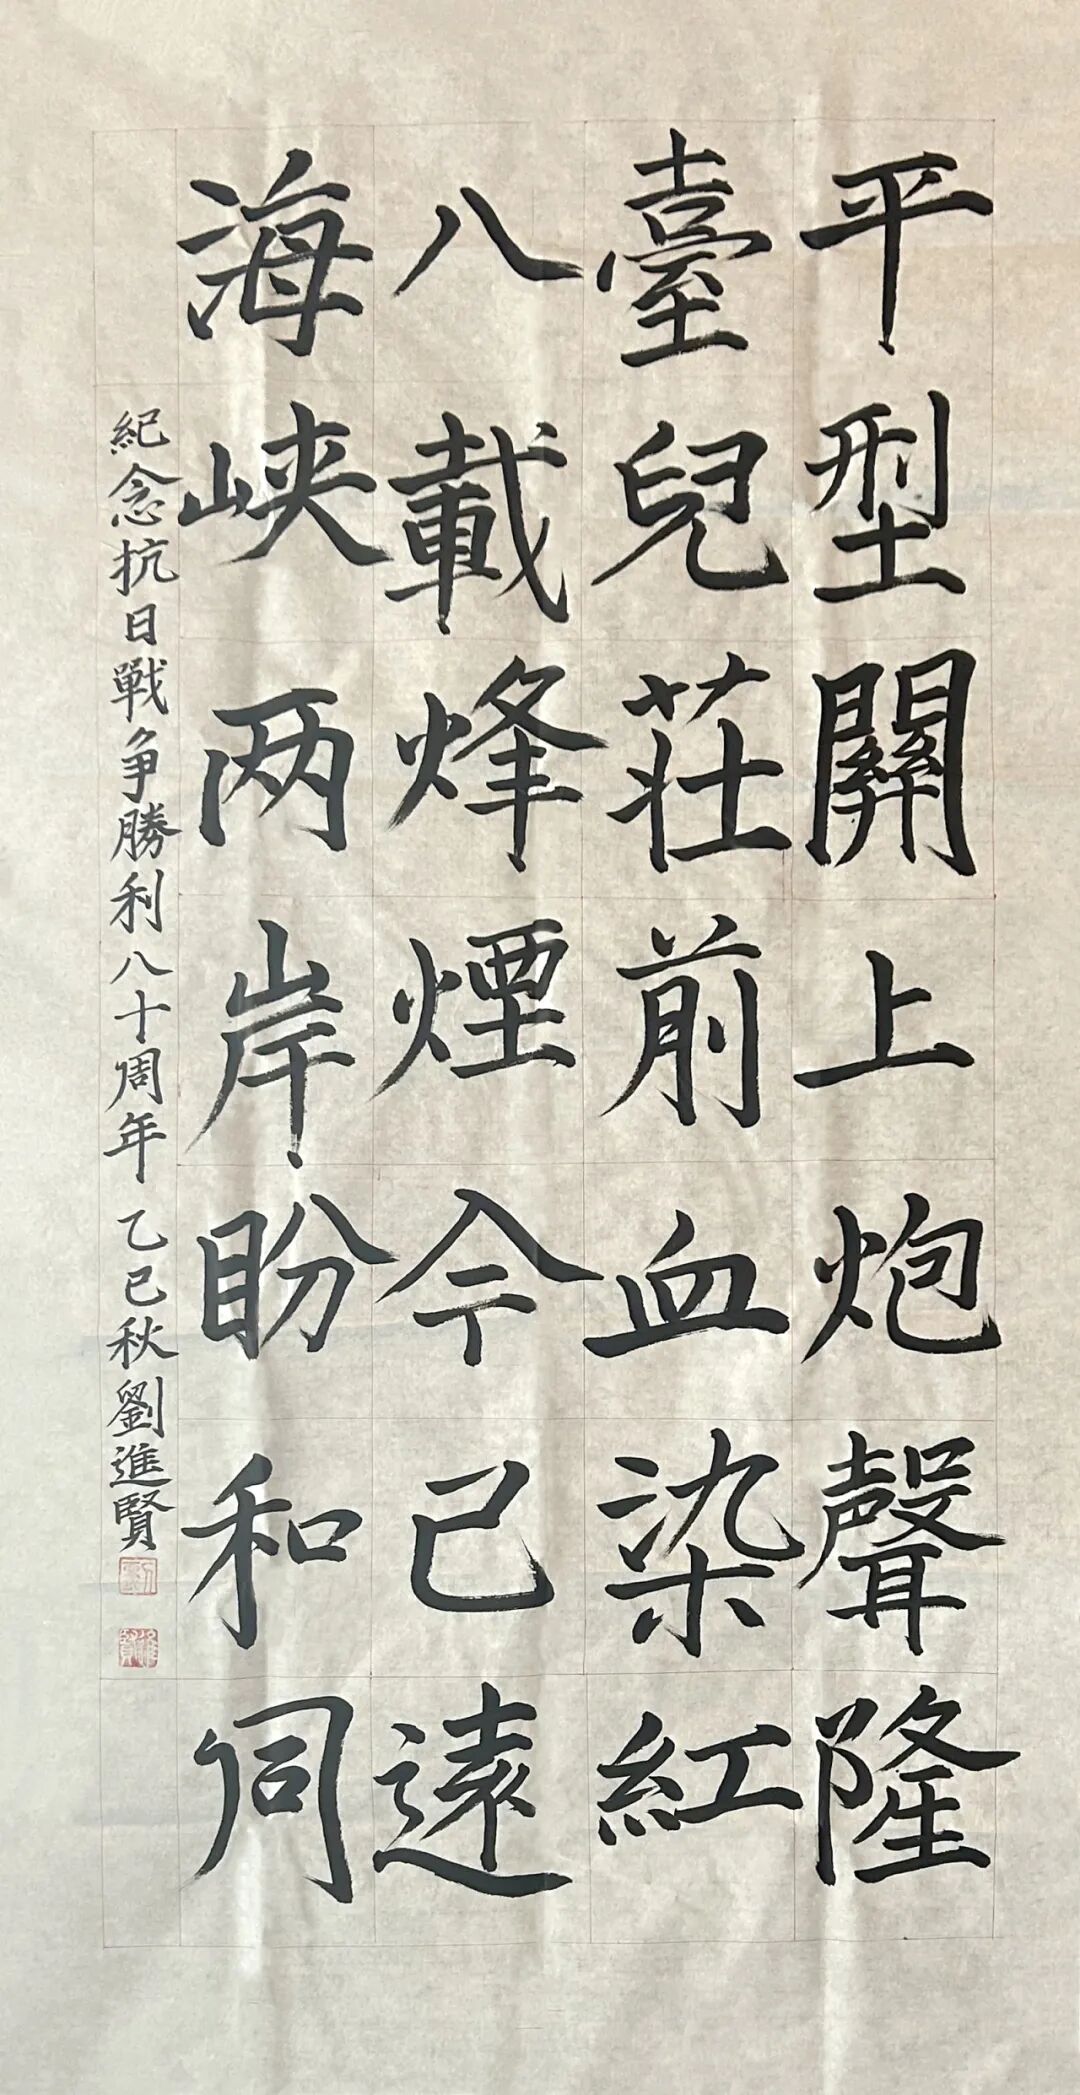 平型關上炮聲隆
臺兒莊前血染紅
八載烽煙今已遠
海峡两岸盼和同
紀念抗日戰争勝利八十周年 乙巳秋劉進賢